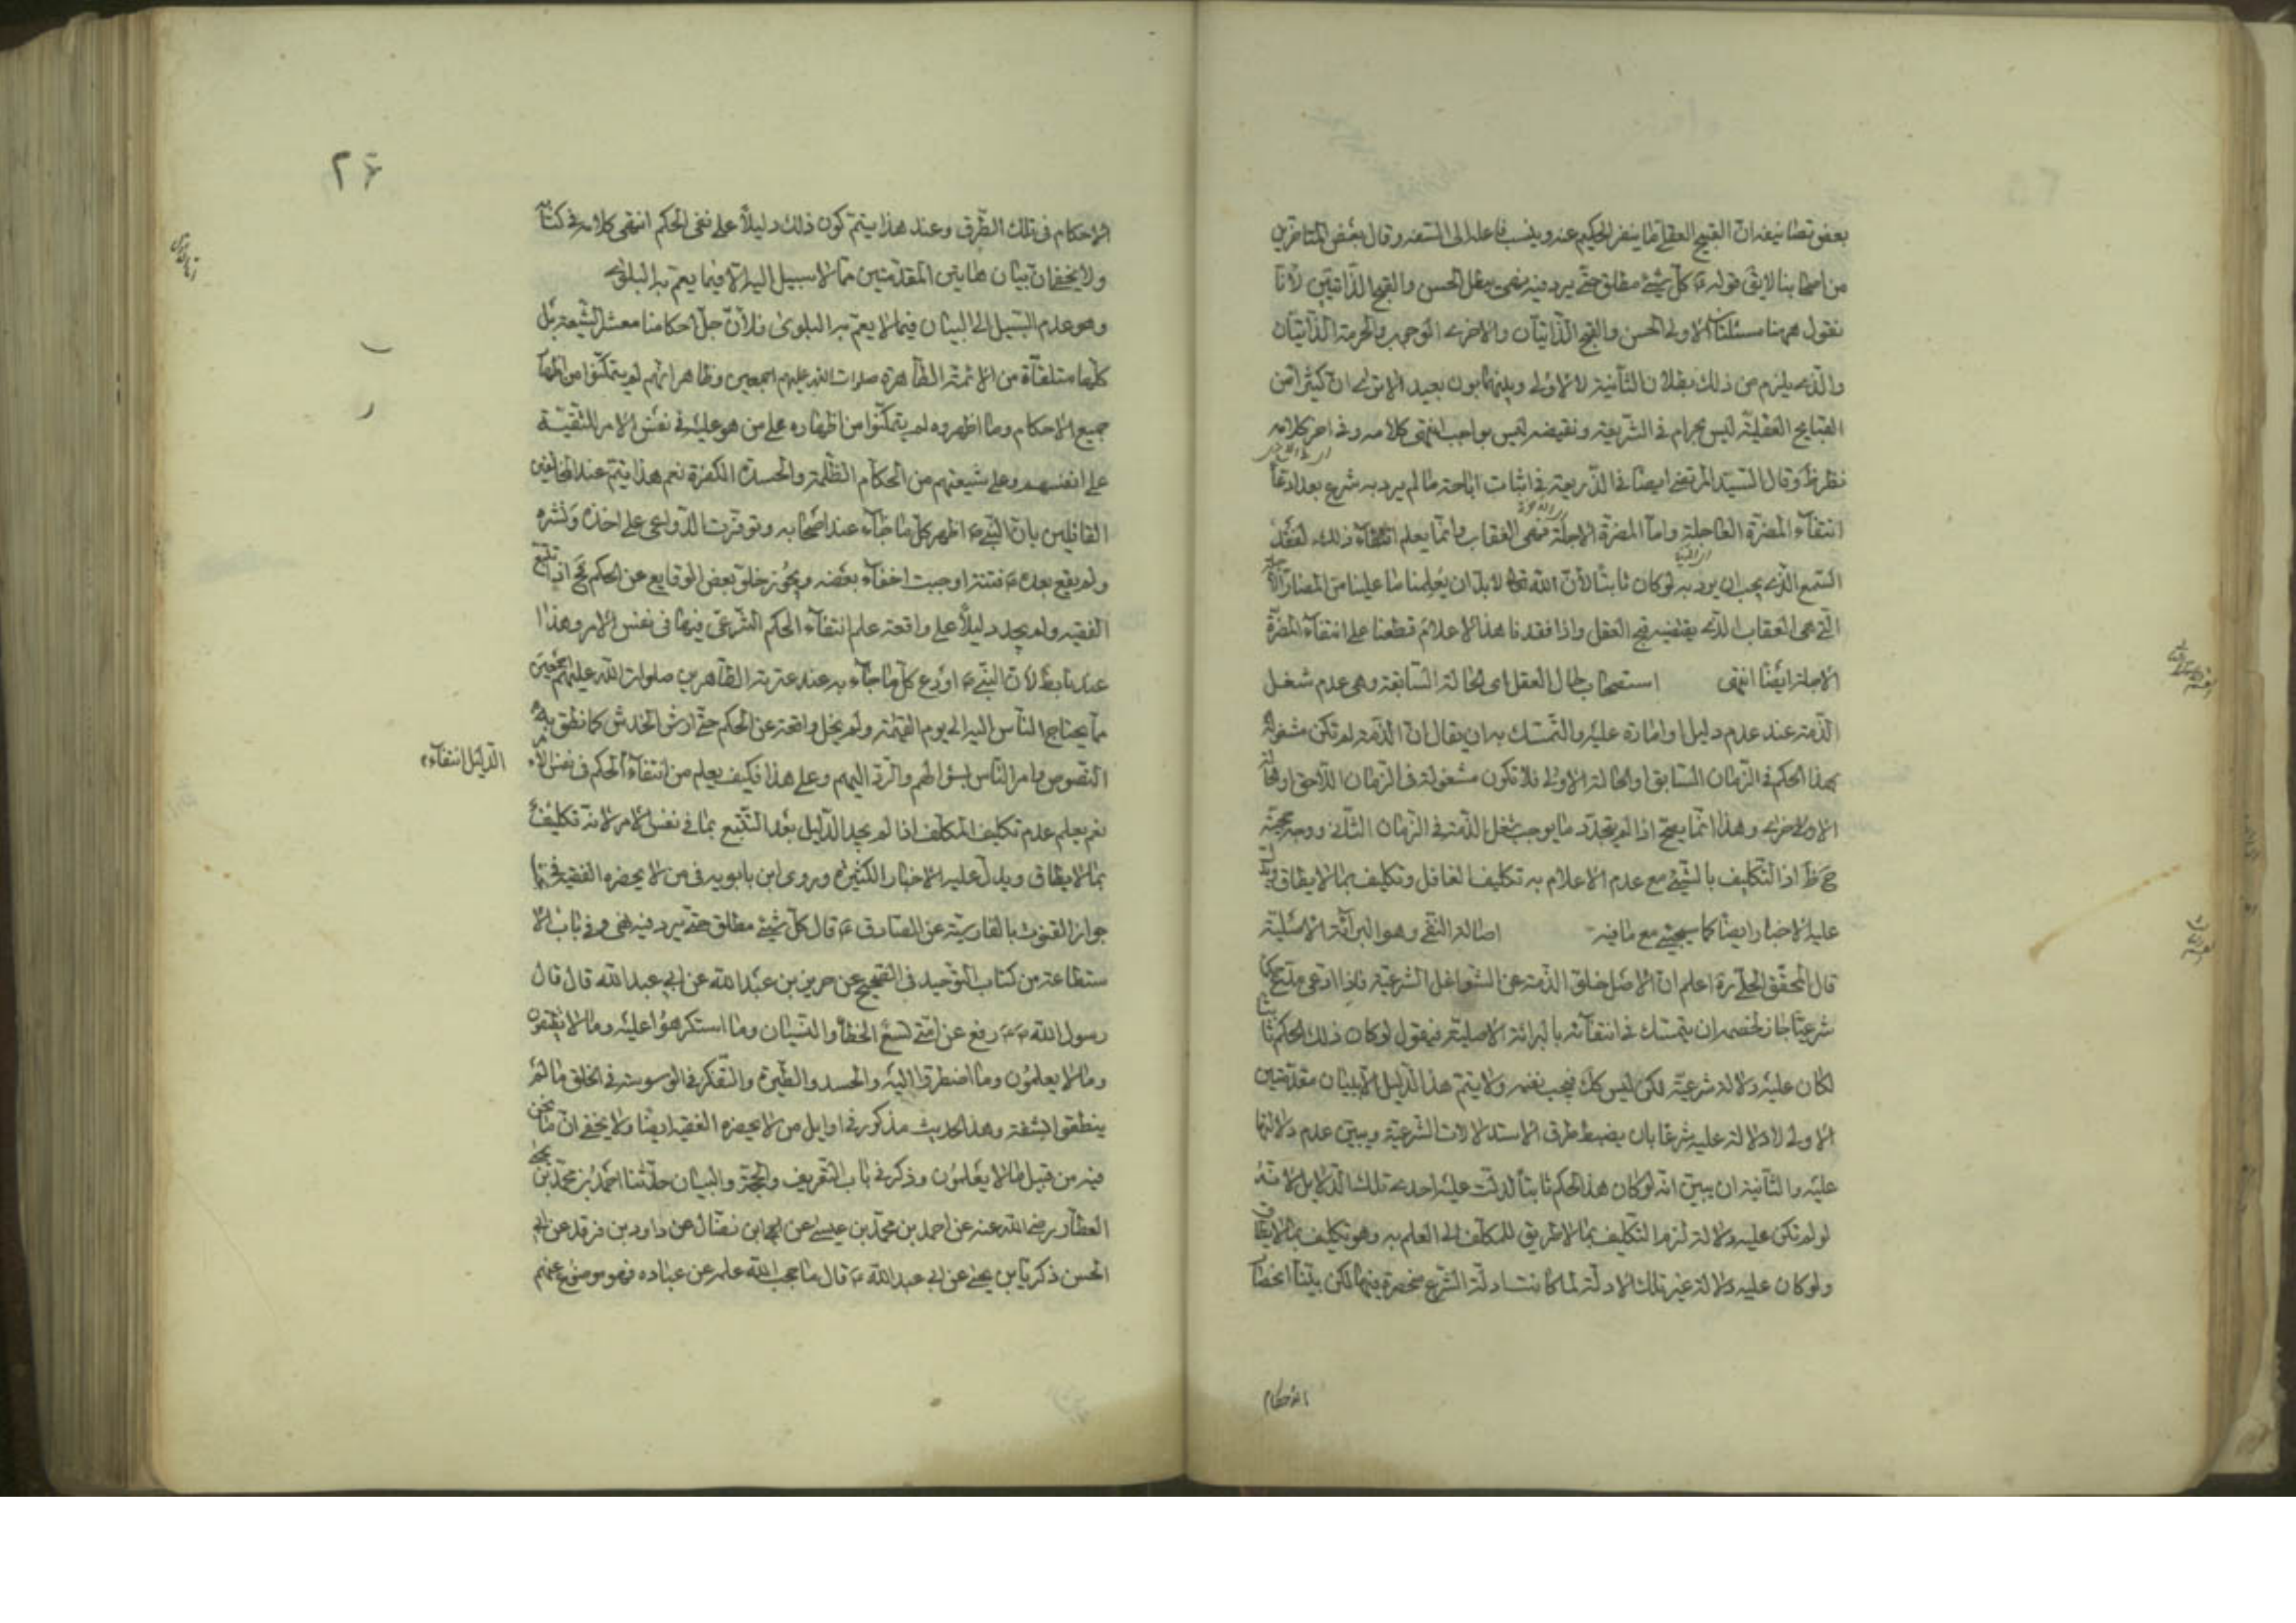 بعض تصانيفه ان القبيح العقلي ما ينفر الحكيم عنه وينسب فاعله الى السفه وقال بعض المتاخرين
من اصحابنا لا يق قوله ع كل شيء مطلق حتى يرد فيه نهي يبطل الحسن والقبح الذاتيين لانا
نقول ههنا مسئلتان الاولى الحسن والقبح الذاتيان والاخرى الوجوب والحرمة الذاتيتان
والذي يلزم من ذلك بطلان الثانية لا الاولى وبينهما بون بعيد الا ترى ان كثيرا من
القبايح العقلية ليس بحرام في الشريعة ونقيضه ليس بواجب انتهى كلامه وفي اخر كلامه
نظر ظ وقال السيد المرتضى ايضا في الذريعة في اثبات اباحة ما لم يرد به شرع بعد ادعا
انتفآء المضرة العاجلة واما المضرة الاجلة فهي العقاب وانما يعلم انتفآء ذلك لفقد
السمع الذي يجب ان يرد به لو كان ثابتا لان الله تعالى لا بد ان يعلمنا ما علينا من المضار
التي هي العقاب الذي يقتضيه قبح العقل واذا فقدنا هذا الاعلام قطعنا على انتفاء المضرة
الاجلة ايضا انتهى استصحاب حال العقل اى الحالة السابقة وهي عدم شغل
الذمة عند عدم دليل او امارة عليه والتمسك به ان يقال ان الذمة لم تكن مشغولة
بهذا الحكم في الزمان السابق او الحالة الاولى فلا تكون مشغولة في الزمان اللاحق او الحالة
الاخرى وهذا انما يصح اذا لم يتجدد ما يوجب شغل الذمة في الزمان الثاني ووجه حجيته
ح ظ اذ التكليف بالشيء مع عدم الاعلام به تكليف الغافل وتكليف بما لا يطاق ويدل
عليه الاخبار ايضا كما سيجيء مع ما فيه اصالة النفي وهو البرائة الاصلية
قال المحقق الحلي ره اعلم ان الاصل خلو الذمة عن الشواغل الشرعية فاذا ادعى مدع حكما
شرعيا جاز لخصمه ان يتمسك في انتفائه بالبرائة الاصلية فيقول لو كان ذلك الحكم ثابتا
لكان عليه دلالة شرعية لكن ليس كك فيجب نفيه ولا يتم هذا الدليل الا ببيان مقدمتين
الاولى لا دلالة عليه شرعا بان يضبط طرق الاستدلالات الشرعية ويبين عدم دلالتها
عليه والثانية ان يبين انه لو كان هذا الحكم ثابتا لدلت عليه احدى تلك الدلايل لانه
لو لم تكن عليه دلالة لزم التكليف بما لا طريق للمكلف الى العلم به وهو تكليف بما لا يطاق
ولو كان عليه دلالة غير تلك الادلة لما كانت ادلة الشرع منحصرة فيها لكن بينا انحصار
الاحكام
٢۶
الاحكام في تلك الطرق وعند هذا يتم كون ذلك دليلا على نفي الحكم انتهى كلامه في كتابه
ولا يخفى ان بيان هاتين المقدمتين مما لا سبيل اليه الا فيما يعم به البلوى
وهو عدم السبيل الى البيان فيما لا يعم به البلوى فلان جل احكامنا معشر الشيعة بل
كلها متلقاة من الائمة الطاهرة صلوات الله عليهم اجمعين وظاهر انهم لم يتمكنوا من اظهار
جميع الاحكام وما اظهروه لم يتمكنوا من اظهاره على من هو عليه في نفس الامر للتقية
على انفسهم وعلى شيعتهم من الحكام الظلمة والحسدة الكفرة نعم هذا يتم عند المخالفين
القائلين بان النبي ص اظهر كل ما جاء عند اصحابه وتوفرت الدواعي على اخذه ونشره
ولم يقع بعده ص فتنة اوجبت اخفاء بعضه ويجوز خلو بعض الوقايع عن الحكم فح اذا تتبع
الفقيه ولم يجد دليلا على واقعة علم انتفاء الحكم الشرعي فيها في نفس الامر وهذا
عندنا بط لان النبي ص اودع كل ما جاء به عند عترته الطاهرين صلوات الله عليهم اجمعين
ما يحتاج الناس اليه الى يوم القيمة ولم يخل واقعة عن الحكم حتى ارش الخدش كما نطق به
النصوص وامر الناس بسؤالهم والرد اليهم وعلى هذا فكيف يعلم من انتفاء الحكم في نفس الامر
الدليل انتفاء
نعم يعلم عدم تكليف المكلف اذا لم يجد الدليل بعد التتبع بما في نفس الامر لانه تكليف
بما لا يطاق ويدل عليه الاخبار الكثيرة وروى ابن بابويه في من لا يحضره الفقيه في
جواز القنوت بالفارسية عن الصادق ع قال كل شيء مطلق حتى يرد فيه نهي وفي باب الا
ستطاعة من كتاب التوحيد في الصحيح عن حريز بن عبد الله عن ابي عبد الله قال قال
رسول الله ص رفع عن امتي تسع الخطأ والنسيان وما استكرهوا عليه وما لا يطيقون
وما لا يعلمون وما اضطروا اليه والحسد والطيرة والتفكر في الوسوسة في الخلق ما لم
ينطقوا بشفة وهذا الحديث مذكور في اوايل من لا يحضره الفقيه ايضا ولا يخفى ان ما نحن
فيه من قبيل ما لا يعلمون وذكر في باب التعريف والحجة والبيان حدثنا احمد بن محمد بن يحيى
العطار رضي الله عنه عن احمد بن محمد بن عيسى عن ابن فضال عن داود بن فرقد عن ابي
الحسن زكريا بن يحيى عن ابي عبد الله ع قال ما حجب الله علمه عن عباده فهو موضوع عنهم